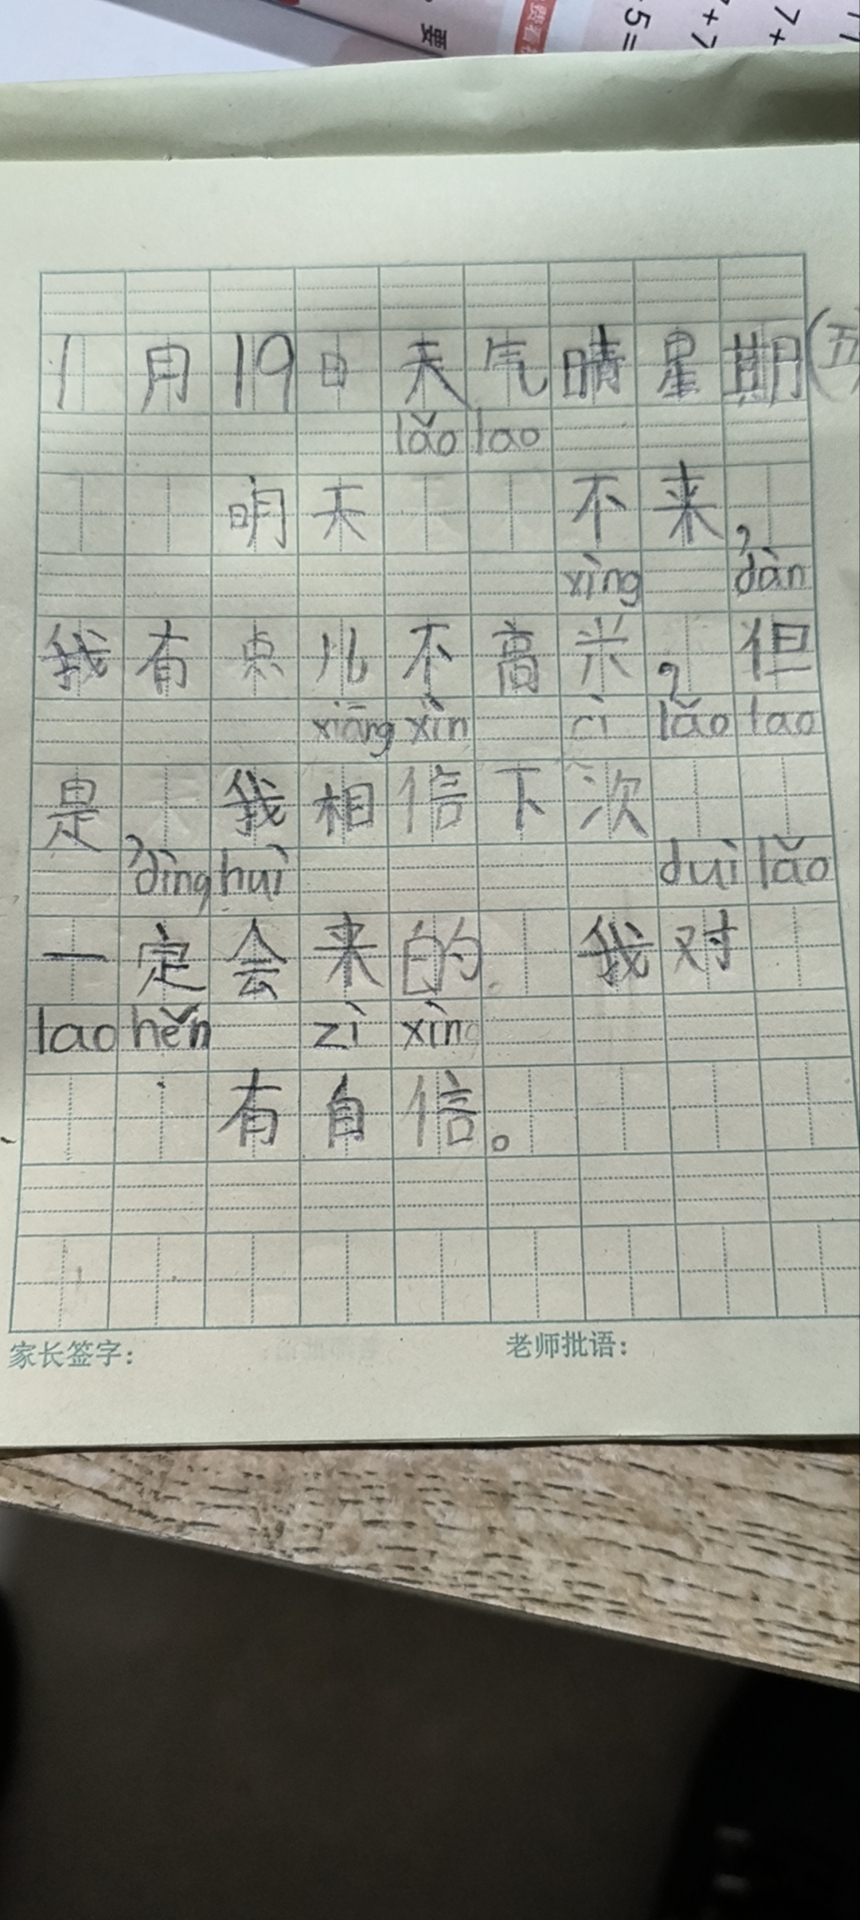 要
5=
7+7
7+
1月19日天气晴星期(五)
lǎo lao
明天 不来，
xìng dàn
我有点儿不高兴，但
xiāng xìn cì lǎo lao
是，我相信下次
dìng huì duì lǎo
一定会来的。我对
lao hěn zì xìn
有自信。
家长签字：
老师批语：